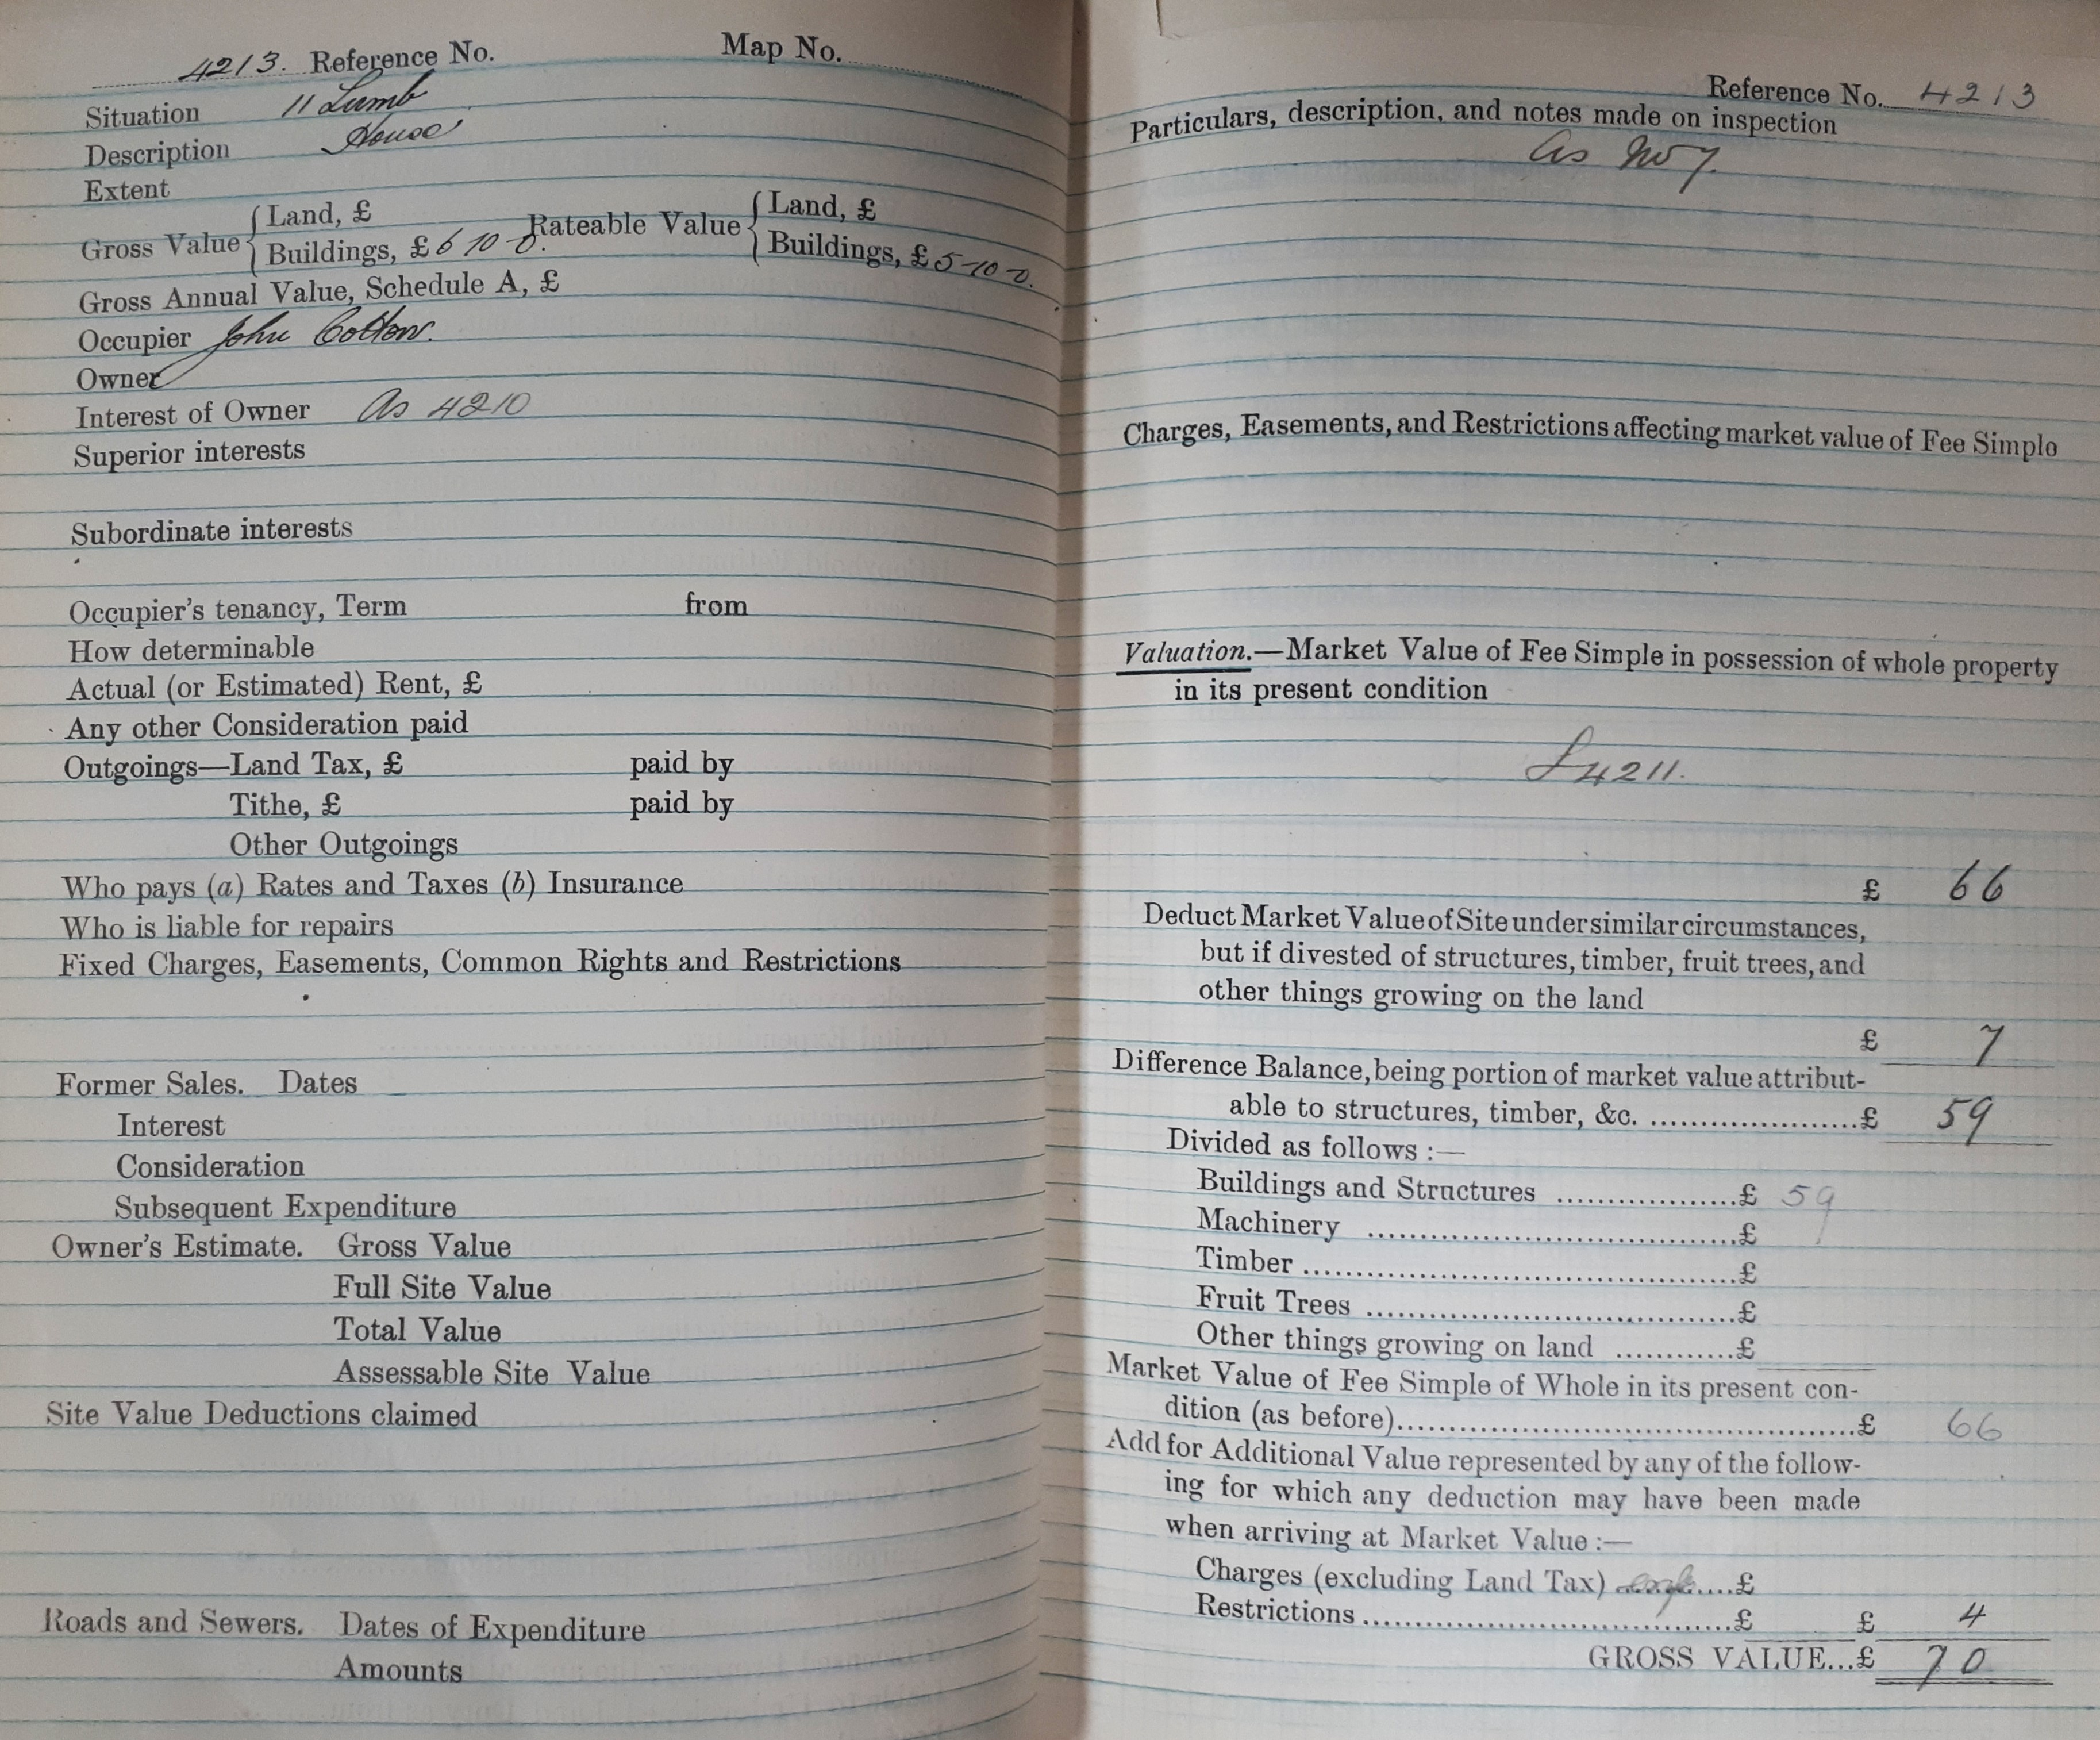 4213. Reference No. Map No.
Situation 11 Lumb
Description House
Extent
Gross Value { Land, £ Rateable Value { Land, £
Buildings, £ 6 10 - 0. Buildings, £ 5-10-0.
Gross Annual Value, Schedule A, £
Occupier John Cotton.
Owner
Interest of Owner As 4210
Superior interests
Subordinate interests
Occupier's tenancy, Term from
How determinable
Actual (or Estimated) Rent, £
Any other Consideration paid
Outgoings—Land Tax, £ paid by
Tithe, £ paid by
Other Outgoings
Who pays (a) Rates and Taxes (b) Insurance
Who is liable for repairs
Fixed Charges, Easements, Common Rights and Restrictions
Former Sales. Dates
Interest
Consideration
Subsequent Expenditure
Owner's Estimate. Gross Value
Full Site Value
Total Value
Assessable Site Value
Site Value Deductions claimed
Roads and Sewers. Dates of Expenditure
Amounts
Reference No. 4213
Particulars, description, and notes made on inspection
As No 7.
Charges, Easements, and Restrictions affecting market value of Fee Simple
Valuation.—Market Value of Fee Simple in possession of whole property
in its present condition
£4211.
£ 66
Deduct Market Value of Site under similar circumstances,
but if divested of structures, timber, fruit trees, and
other things growing on the land
£ 7
Difference Balance, being portion of market value attribut-
able to structures, timber, &c. .....................£ 59
Divided as follows :—
Buildings and Structures ..................£ 59
Machinery .....................................£
Timber ...........................................£
Fruit Trees .....................................£
Other things growing on land ............£
Market Value of Fee Simple of Whole in its present con-
dition (as before)..............................................£ 66
Add for Additional Value represented by any of the follow-
ing for which any deduction may have been made
when arriving at Market Value :—
Charges (excluding Land Tax) .....£
Restrictions .....................................£ £ 4
GROSS VALUE...£ 70